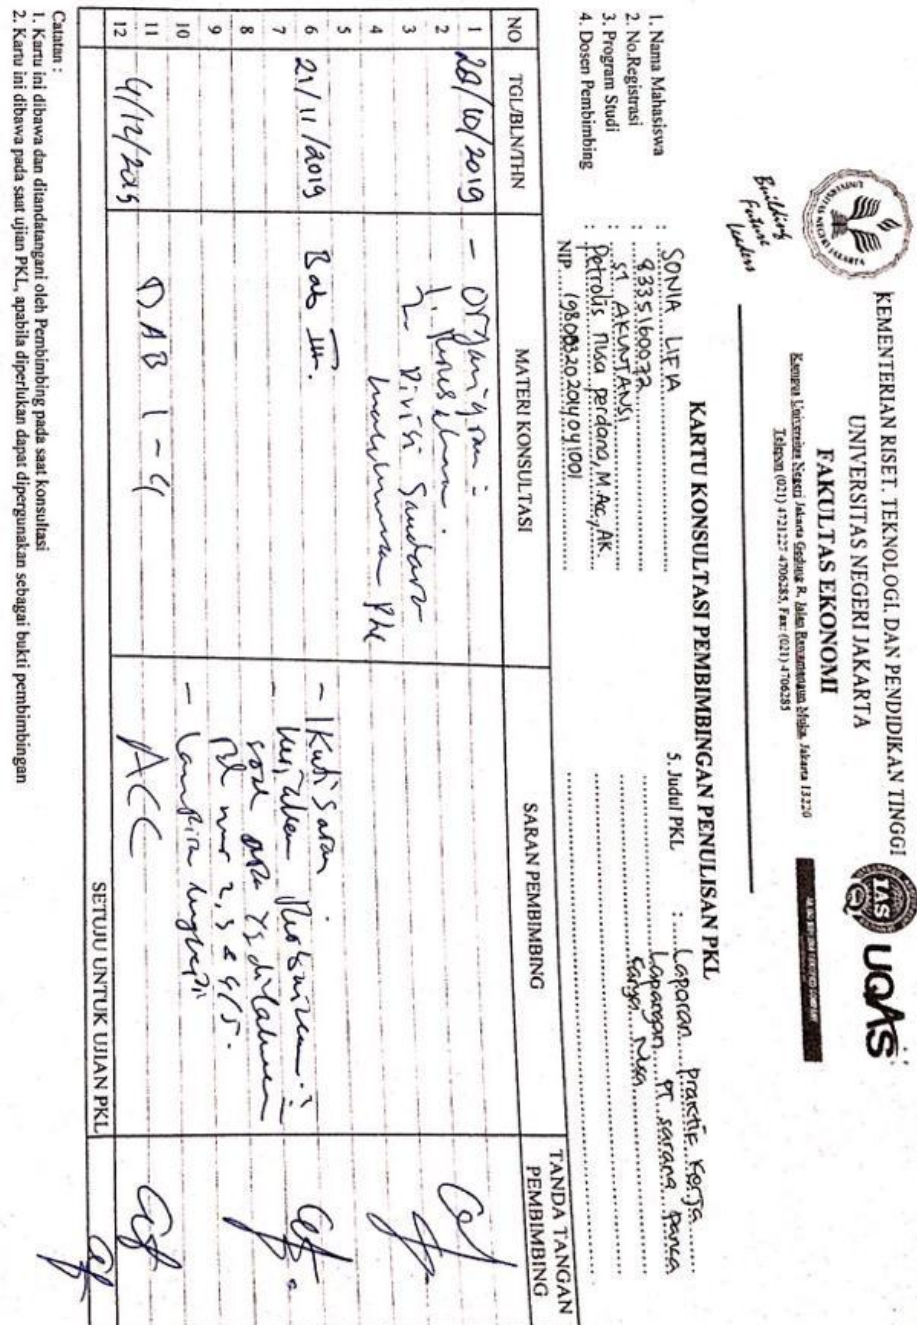 KEMENTERIAN RISET, TEKNOLOGI, DAN PENDIDIKAN TINGGI
UNIVERSITAS NEGERI JAKARTA
FAKULTAS EKONOMI
Kampus Universitas Negeri Jakarta Gedung R, Jalan Rawamangun Muka, Jakarta 13220
Telepon (021) 4721227 4706285, Fax: (021) 4706285
Building
Future
Leaders
UQAS
KARTU KONSULTASI PEMBIMBINGAN PENULISAN PKL
1. Nama Mahasiswa : SONIA LIFIA
2. No.Registrasi : 8335160072
3. Program Studi : S1 AKUNTANSI
4. Dosen Pembimbing : Petrolis Nusa perdana, M.Acc, AK.
NIP. 198003202014041001
5. Judul PKL : Laporan praktik kerja
Lapangan PT sarana panca
Karya Nusa
NO TGL/BLN/THN MATERI KONSULTASI SARAN PEMBIMBING TANDA TANGAN PEMBIMBING
1 /10/2019 -
2 1.
3 2. Divisi
4 PKL
5
6 21/11/2019 Bab III. - Ikuti saran
7 -
8
9 2, 3 & 4/5.
10 - Lampiran
11 4/12/2019 BAB 1 - 4 ACC
12
SETUJU UNTUK UJIAN PKL
Catatan :
1. Kartu ini dibawa dan ditandatangani oleh Pembimbing pada saat konsultasi
2. Kartu ini dibawa pada saat ujian PKL, apabila diperlukan dapat dipergunakan sebagai bukti pembimbingan